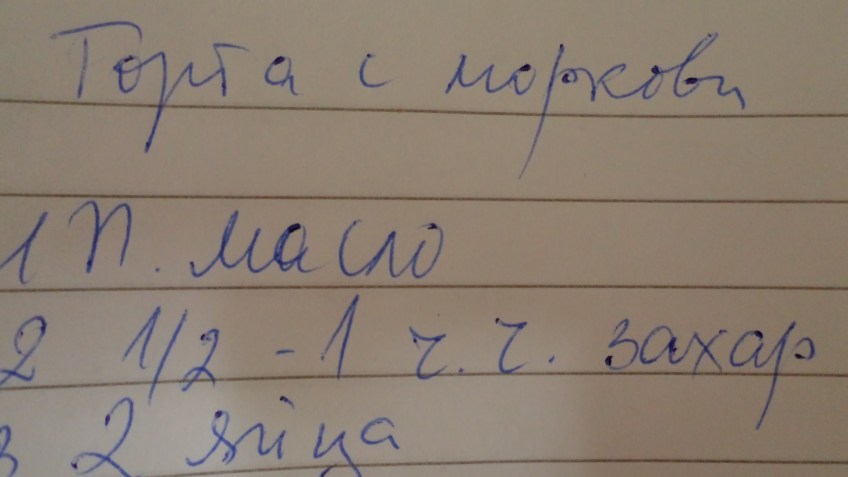 Торта с моркови
1 п. масло
2 1/2 - 1 ч.ч. захар
3 2 яйца